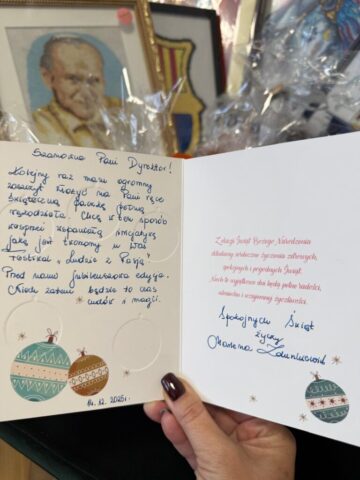 Szanowna Pani Dyrektor!
Kolejny raz mam ogromny
zaszczyt złożyć na Pani ręce
świąteczną paczkę pełną
rękodzieła. Chcę w ten sposób
wesprzeć wspaniałą inicjatywę
jaką jest
festiwal "Ludzie z Pasją".
Przed nami jubileuszowa edycja.
Niech zatem będzie to czas
cudów i magii.
14.12.2025r.
Z okazji Świąt Bożego Narodzenia
składamy serdeczne życzenia zdrowych,
spokojnych i pogodnych Świąt.
Niech te wyjątkowe dni będą pełne radości,
uśmiechu i wzajemnej życzliwości.
Spokojnych Świąt
życzy